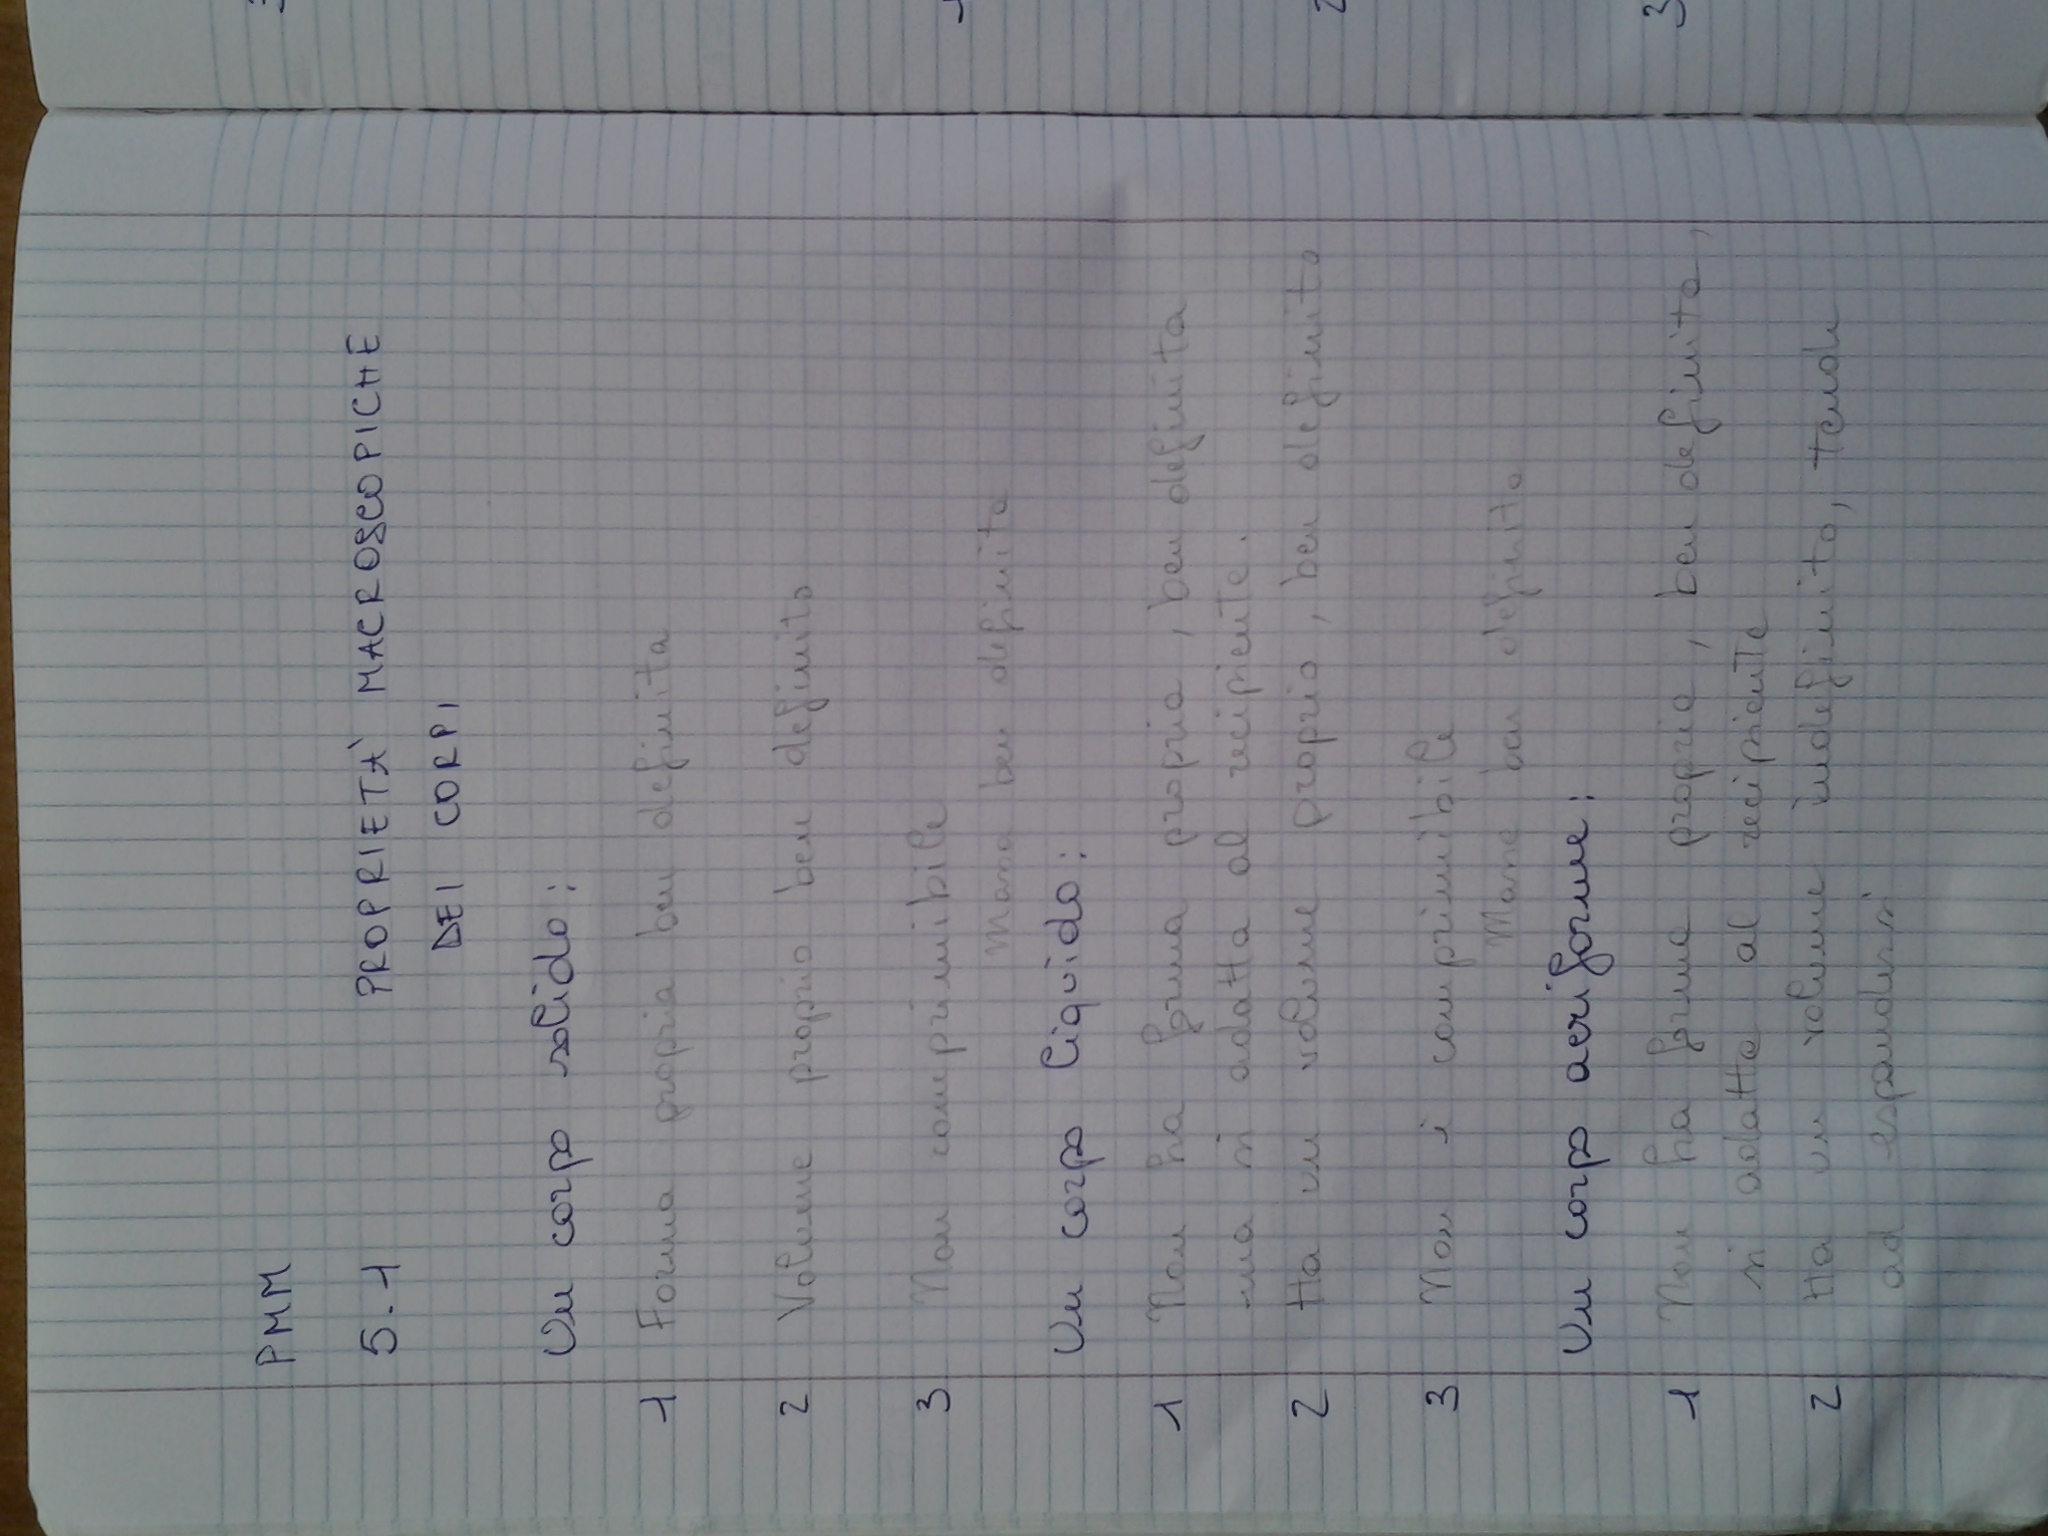 PMM
5.1 PROPRIETÀ MACROSCOPICHE
DEI CORPI
Un corpo solido:
1 Forma propria ben definita
2 Volume proprio ben definito
3 Non comprimibile
Massa ben definita
Un corpo liquido:
1 Non ha forma propria, ben definita
ma si adatta al recipiente.
2 Ha un volume proprio, ben definito
3 Non è comprimibile
Massa ben definita
Un corpo aeriforme:
1 Non ha forma propria, ben definita,
si adatta al recipiente
2 Ha un volume indefinito, tende
ad espandersi
1
2
3